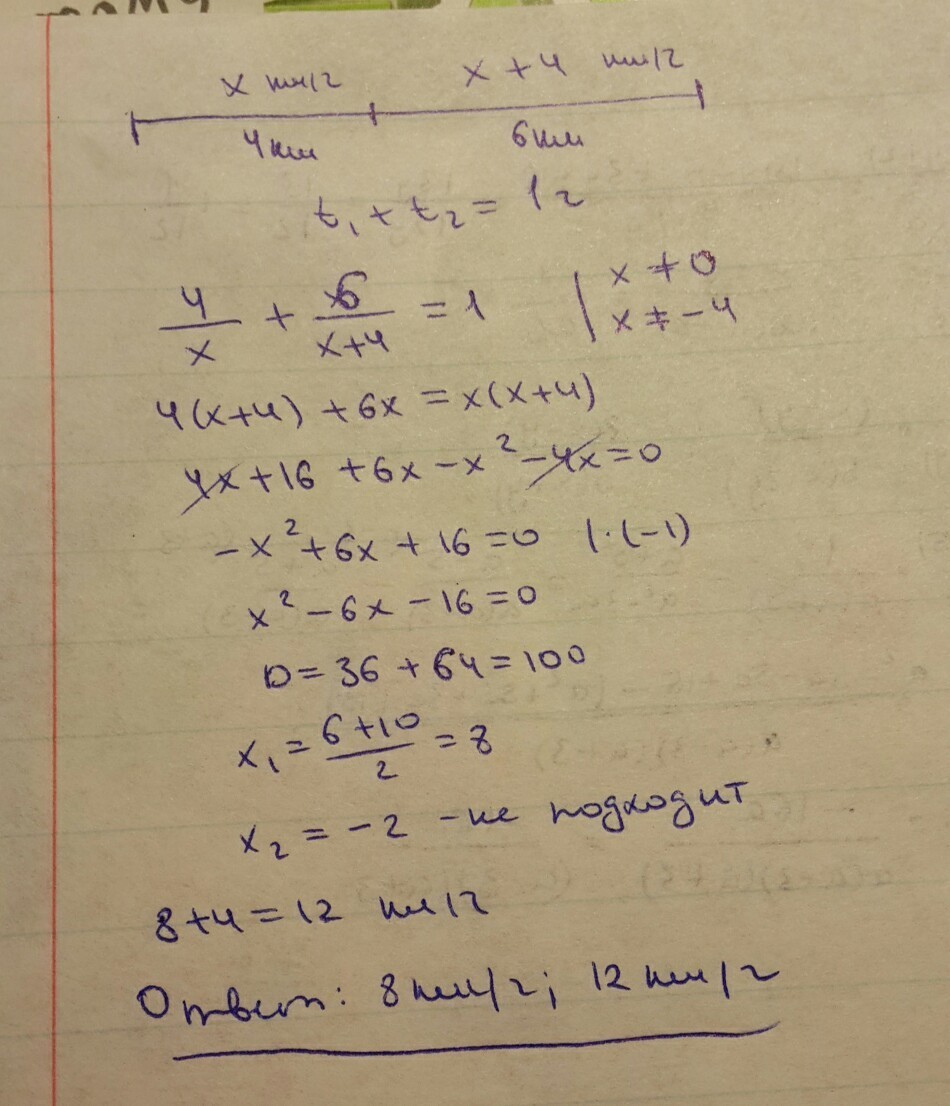 x км/ч x + 4 км/ч
4км 6км
t₁ + t₂ = 1ч
4/x + 6/(x+4) = 1 | x ≠ 0
x ≠ -4
4(x+4) + 6x = x(x+4)
4x + 16 + 6x - x² - 4x = 0
-x² + 6x + 16 = 0 |·(-1)
x² - 6x - 16 = 0
D = 36 + 64 = 100
x₁ = (6+10)/2 = 8
x₂ = -2 - не подходит
8+4 = 12 км/ч
Ответ: 8 км/ч; 12 км/ч